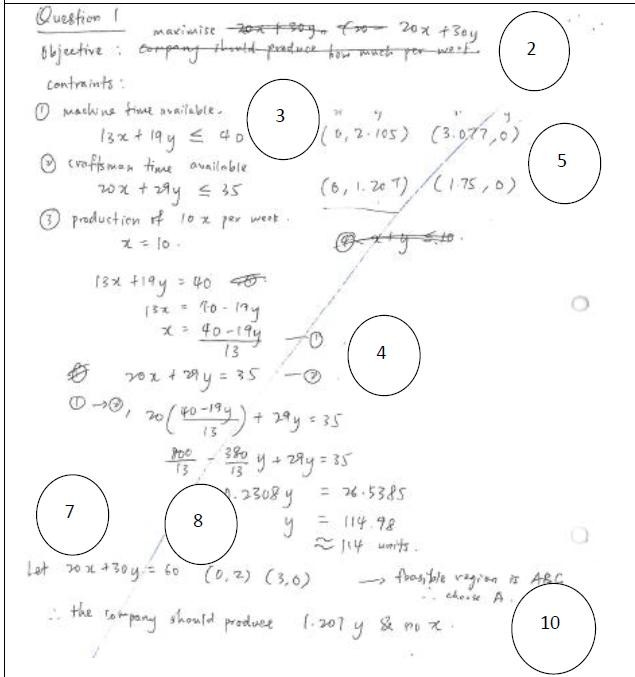 Question 1
maximise 20x + 30y 20x + 30y
Objective : company should produce how much per week.
2
contraints :
① machine time available.
3
x y x y
13x + 19y ≤ 40 (0, 2.105) (3.077, 0)
② craftsman time available
5
20x + 29y ≤ 35 (0, 1.207) (1.75, 0)
③ production of 10 x per week.
x = 10. x + y ≤ 10.
13x + 19y = 40
13x = 40 - 19y
x = 40 - 19y / 13 — ①
4
20x + 29y = 35 — ②
① → ②, 20 ( 40 - 19y / 13 ) + 29y = 35
800 / 13 - 380 / 13 y + 29y = 35
.2308y = 26.5385
7
8
y = 114.98
≈ 114 units.
Let 20x + 30y = 60 (0, 2) (3, 0) → feasible region is ABC
∴ choose A.
∴ the company should produce 1.207 y & no x.
10